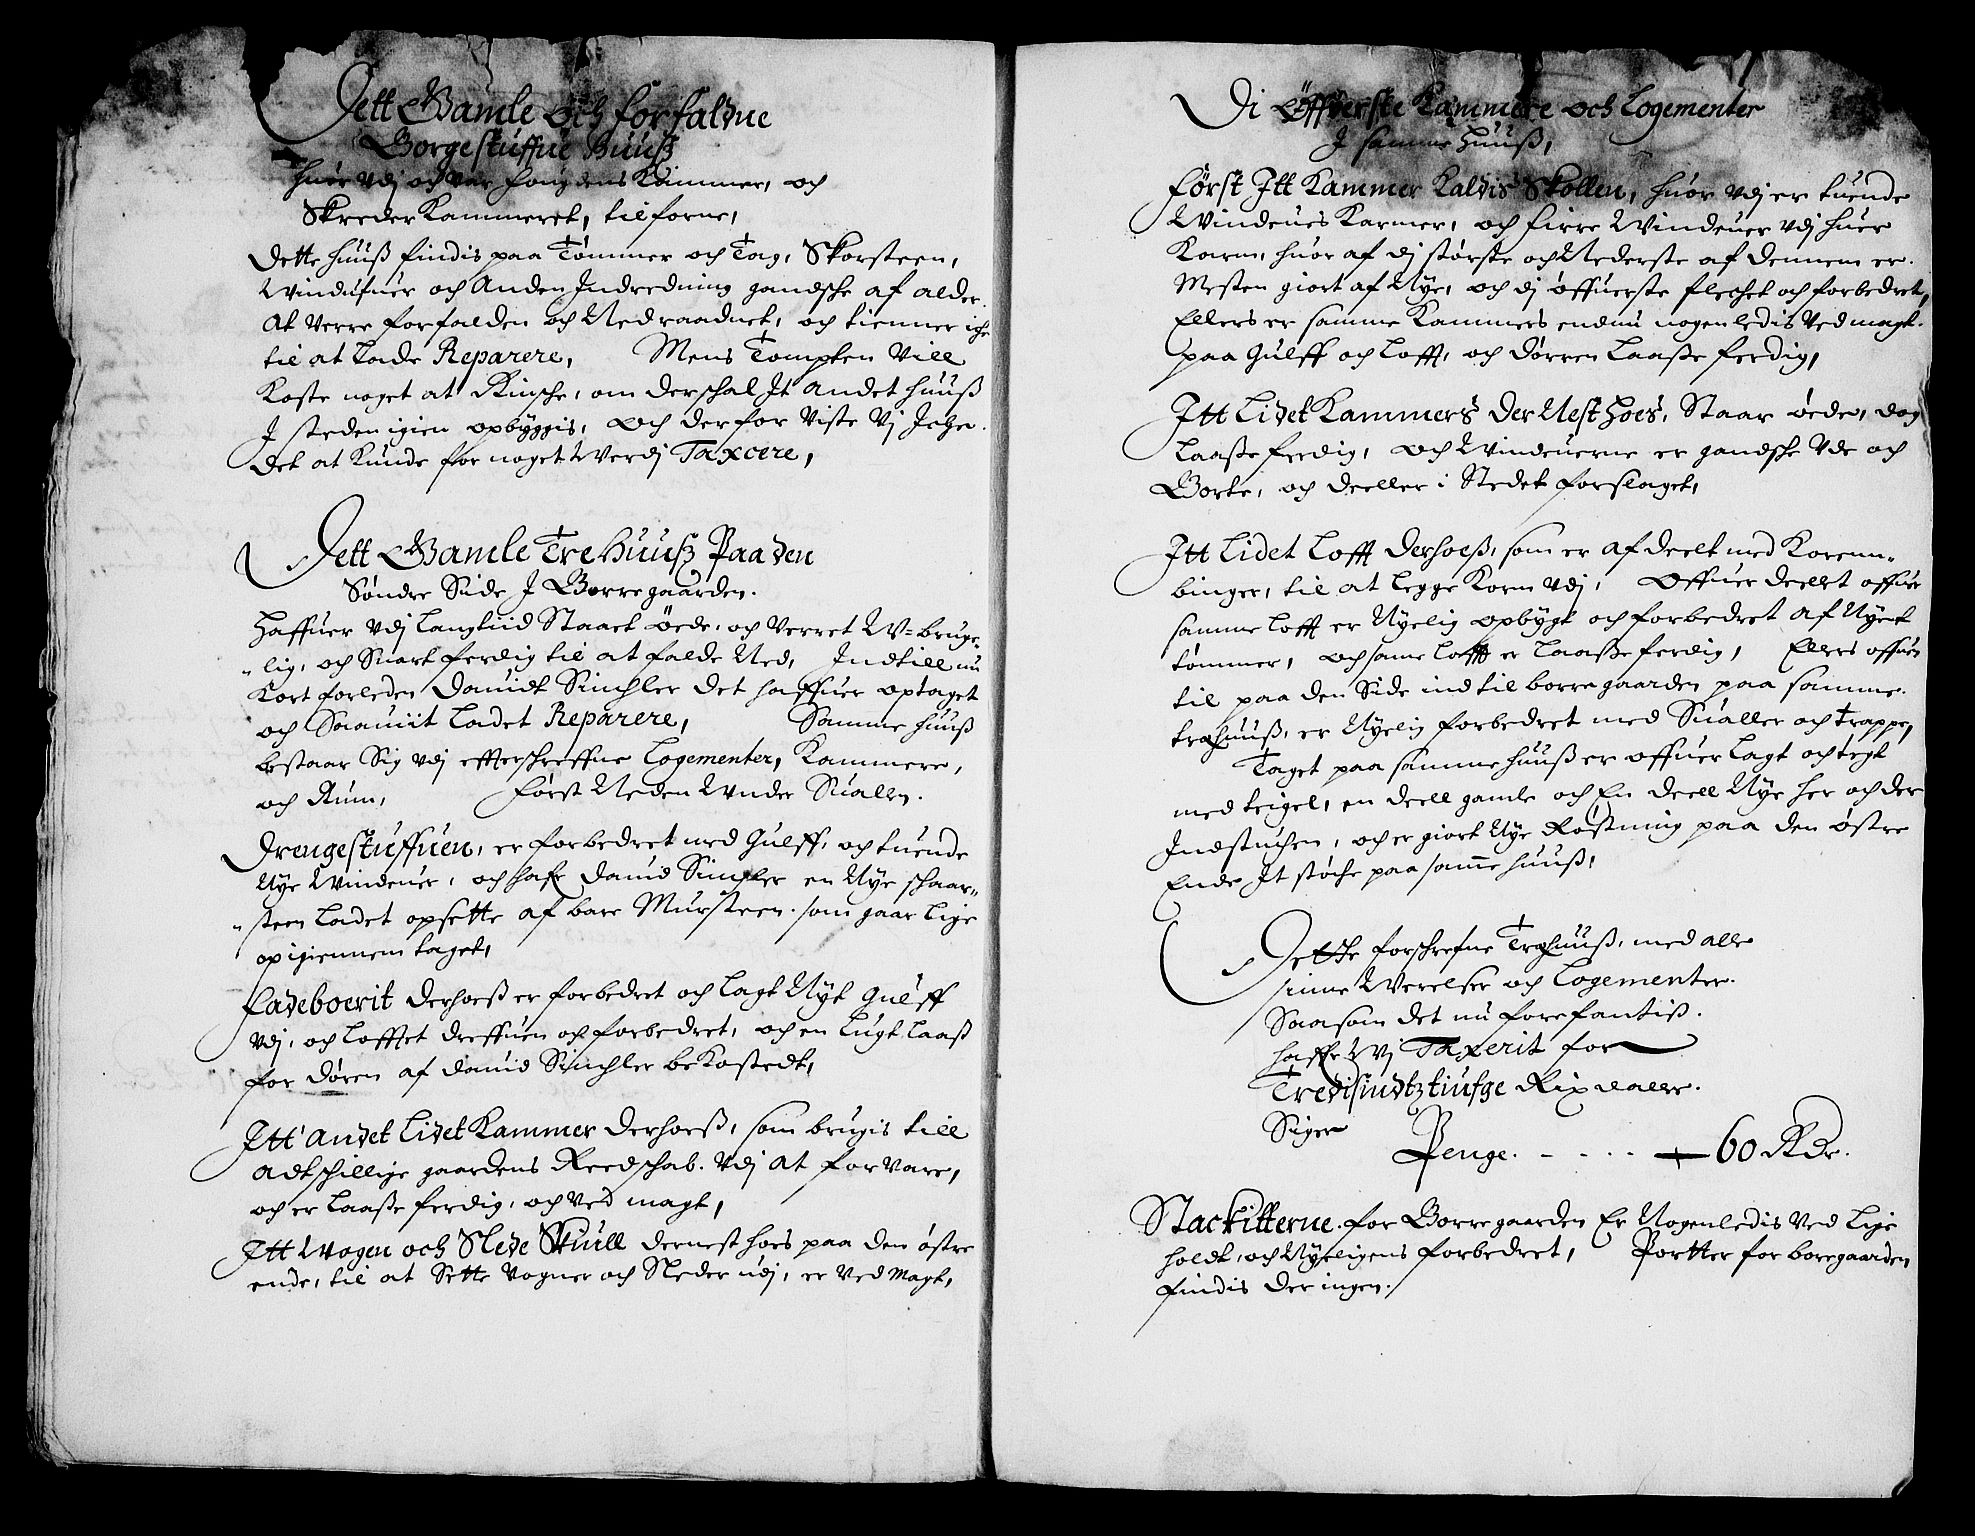 Dett Gamle och forfaldne
Borgestuffue Huuß
huor vdj och var fougdens Kammer, och
Skreder Kammeret, tilforne,
Dette huuß findis paa Tømmer och Tag, Skorsteen,
Winduuer och Anden Indredning gandsche af alder
at verre forfalden och Nedraadnet, och tienner iche
til at Lade Reparere, Mens Tompten vill
Koste noget at Rinsche, om der schal Jt andet huuß
J steden igien opbyggis, och derfor viste Vj Iche
det at kunde for noget Werdj Taxcere,
Dett Gamle Tre Huuß Paa den
Søndre Side J Borregaarden.
Haffuer vdj langtiid Staaet Öede, och verret W=bruge-
lig, och Snart ferdig til at falde Ned, Indtill nu
Kort forleden Dauidt Sinchler det haffuer optaget
och Saauiit Ladet Reparere, Samme huuß
bestaar Sig vdj effterschreffne Logementer, Kammere,
och Rum, Først Neden Under Sualen.
Drengestuffuen, er forbedret med Gulff, och tuende
Nye Winduer, och hafr Dauid Sincler en Nye schaar-
steen Ladet opsette af bare Mursteen som gaar lige
op igiennem taget,
Fadeboerit derhoeß er forbedret och lagt Nyt Gulff
vdj, och lofftet dreffuen och forbedret, och en Lugt Laaß
for døren af Dauid Sinchler bekostedt,
Itt andet lidet Kammer derhoeß, som brugis till
adtschillige gaardens Reedschab vdj at forvare,
och er Laaße ferdig, och ved magt,
Itt Wogen och Slede Skiull dernest hoes paa den østre
ende, til at Sette Vogner och Sleder udj, er ved Magt,
Di Öffuerste Kammere och Logementer
J samme Huuß,
Først Itt Kammer Kaldis Skollen, huor vdj er tuende
Windeues Karmer, och firre Windeuer vdj huer
Karm, huor af dj største och Nederste af dennem er
Mesten giort af Nye, och dj øffuerste flechet och forbedret,
Ellers er samme Kammers endnu nogenledis ved magt
paa Gulff och Lofft, och dørren Laaße ferdig,
Itt Lidet Kammers der Nest Hoes, Staar øede, dog
Laaße ferdig, och Windeuerne er gandsche Vde och
Borte, och deeller i Stedet forslaget,
Itt Lidet Lofft derhoeß, som er afdeelt med Korenn-
binger, til at legge Korn vdj, Offuer deellet offuer
samme Lofft er Nyelig opbygt och forbedret af Nyet
tømmer, och same Lofft er Laaße ferdig, Ellers offuen
til paa den Side ind til borregaarden paa samme
træhuuß, er Nyelig forbedret med Sualler och trappe,
Taget paa samme huuß er offuer lagt och tegt
med teigel, en deell gamle och En deell Nye her och der
Indstuchen, och er giort Nye Røstning paa den østre
Ende Jt støche paa samme huuß,
Dette forschrefne Træhuuß, med alle
sinne Werelser och Logementer
Saasom det nu forefantiß.
haffr Wj Taxerit for
Tredisindtztiufge Rixdaller.
Siger
Penge. - - - - - 60 RDr.
Stackitterne for Borregaarden Er Nogenledis ved lige
holdt, och Nyeligens forbedret, Portter for boregaarden
findis der ingen.